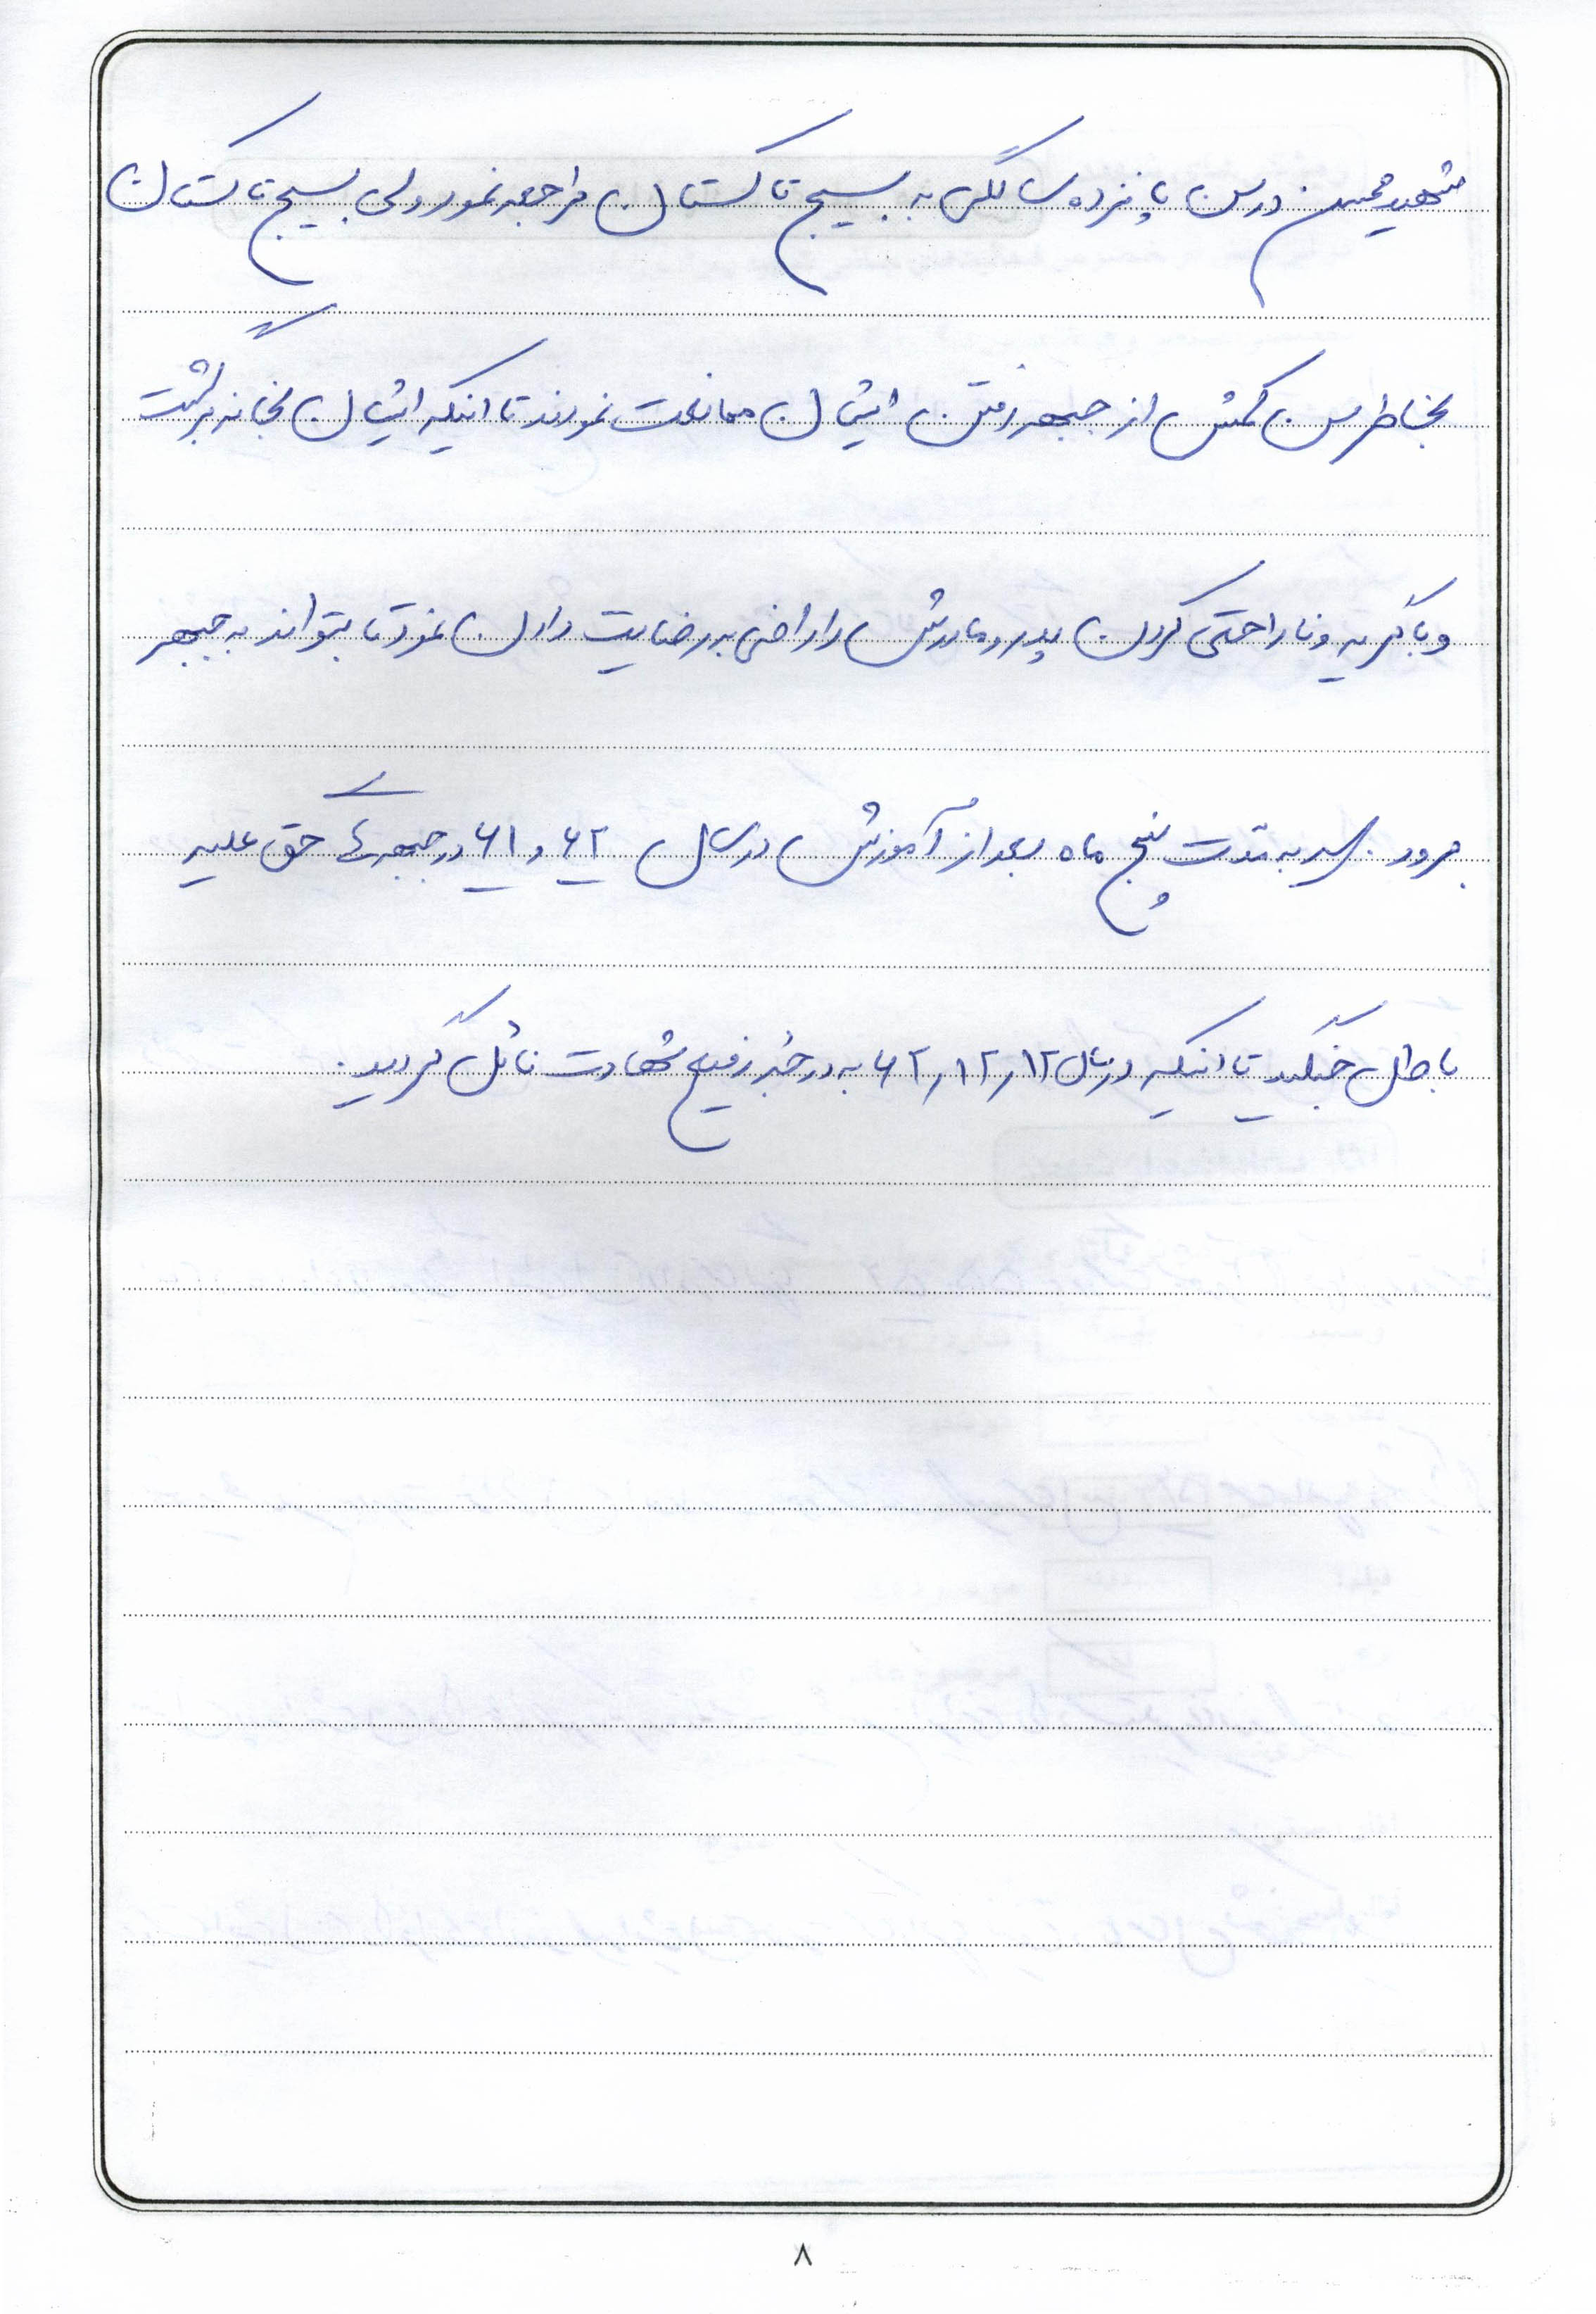 شهید محسن در سن پانزده سالگی به بسیج تاکستان مراجعه نمود ولی بسیج تاکستان
بخاطر سن کمش از جبهه رفتن ایشان ممانعت نمودند تا اینکه ایشان بخانه برگشت
و با گریه و ناراحتی کردن پدر و مادرش را راضی به رضایت دادن نمود تا بتواند به جبهه
برود. به مدت پنج ماه بعد از آموزش در سال ۶۲ و ۶۱ در جبهه های حق علیه
باطل جنگید تا اینکه در سال ۶۲/۱۲/۱۲ به درجه رفیع شهادت نائل گردید.
۸